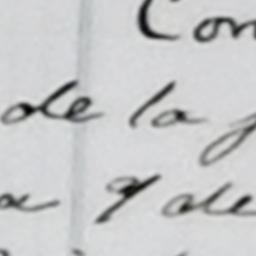 Con
de la
a y de